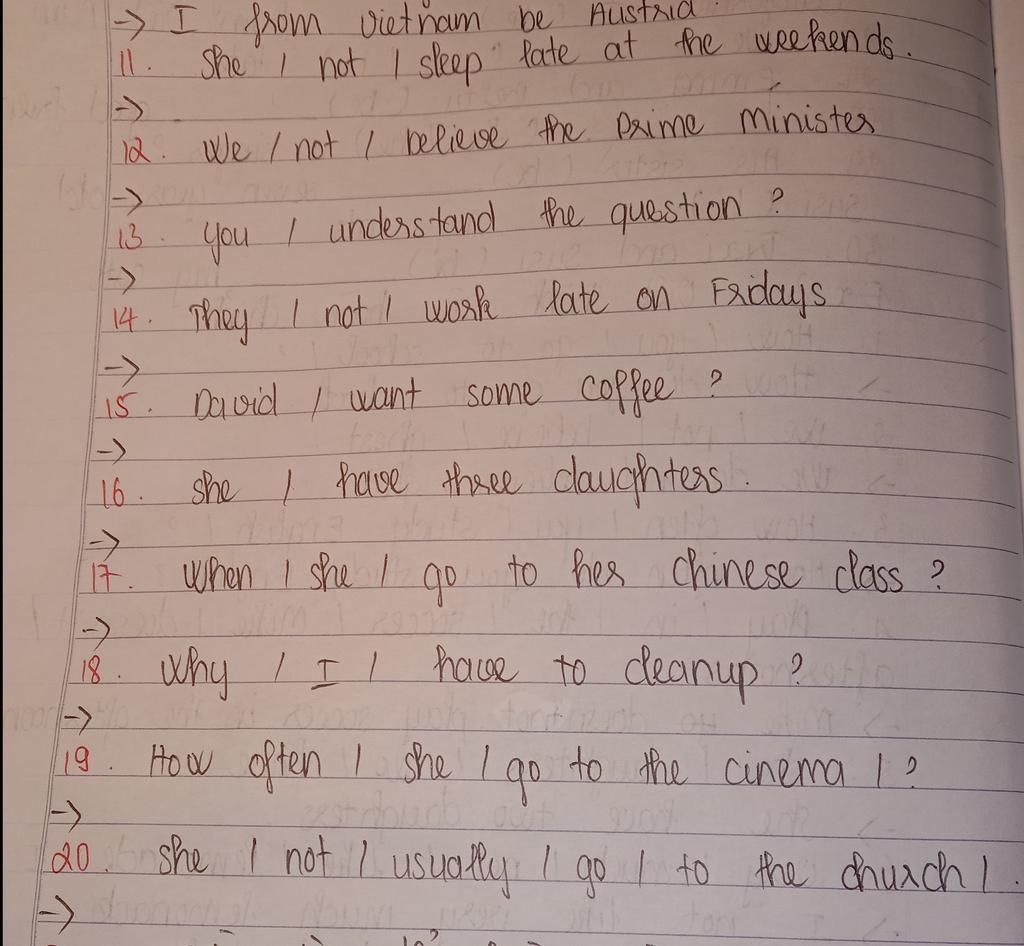 -> I from Vietnam be Austria.
11. She / not / sleep late at the weekends.
->
12. We / not / believe the Prime Minister
->
13. You / understand the question ?
->
14. They / not / work late on Fridays
->
15. David / want some coffee ?
->
16. She / have three daughters.
->
17. When / she / go to her Chinese class ?
->
18. Why / I / have to cleanup ?
->
19. How often / she / go to the cinema / ?
->
20. She / not / usually / go / to the church / .
->